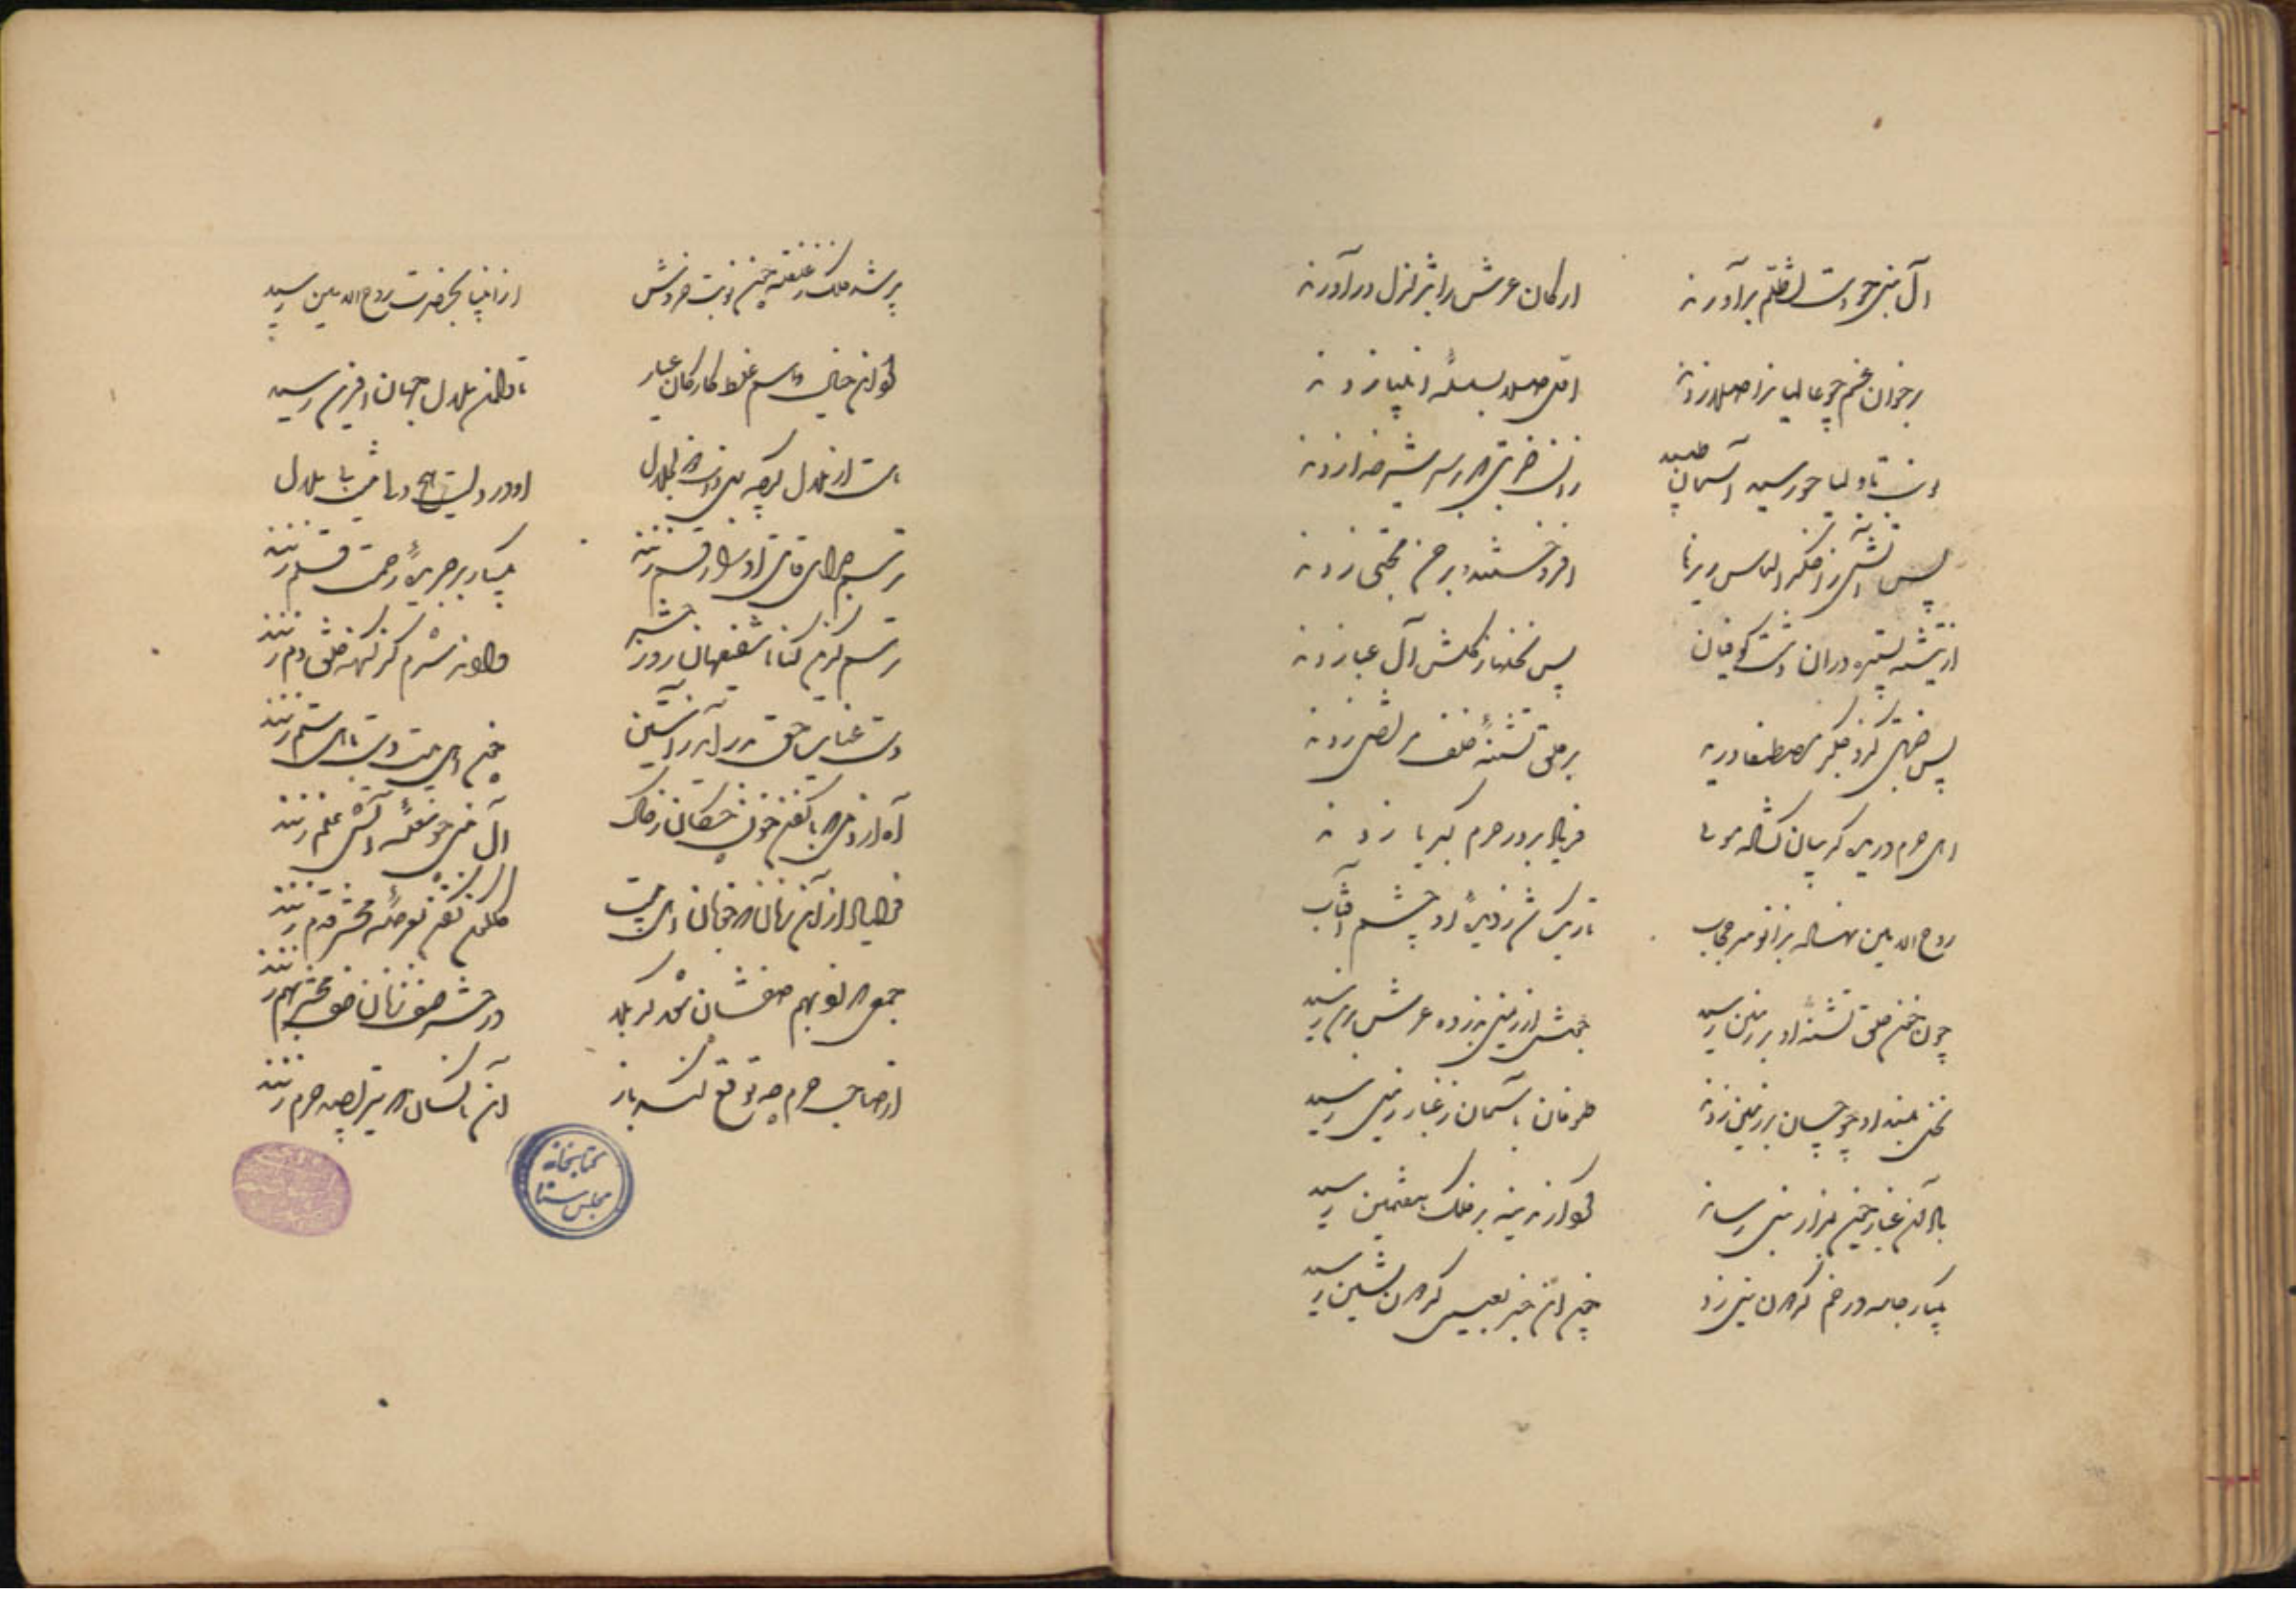 آل نبی چو دست تظلم برآورند ارکان عرش را بتزلزل درآورند
بر خوان غم چو عالمیانرا صلا زدند اول صلا بسلسله انبیا زدند
نوبت باولیا چو رسید آسمان طپید زان ضربتی که بر سر شیر خدا زدند
پس آتشی ز اخگر الماس ریزها افروختند و بر حسن مجتبی زدند
از تیشه ستیزه دران دشت کوفیان بس نخلها ز گلشن آل عبا زدند
پس ضربتی کزو جگر مصطفی درید بر حلق تشنه خلف مرتضی زدند
اهل حرم دریده گریبان گشاده موی فریاد بر در حرم کبریا زدند
روح الامین نهاده بزانو سر حجاب تاریک شد ز دیدن او چشم آفتاب
چون خون حلق تشنه او بر زمین رسید جوش از زمین بذروه عرش برین رسید
نخل بلند او چو خسان بر زمین زدند طوفان بآسمان ز غبار زمین رسید
باد آن غبار چون بمزار نبی رساند گرد از مدینه بر فلک هفتمین رسید
یکباره جامه در خم گردون بنیل زد چون این خبر بعیسی گردون نشین رسید
پر شد فلک ز غلغله چون نوبت خروش از انبیا بحضرت روح الامین رسید
کرد این خیال وهم غلط کار کان غبار تا دامن جلال جهان آفرین رسید
هست از ملال گرچه بری ذات ذوالجلال او در دلست و هیچ دلی نیست بی ملال
ترسم جزای قاتل او چون رقم زنند یکباره بر جریده رحمت قلم زنند
ترسم کزین گناه شفیعان روز حشر دارند شرم کز گنه خلق دم زنند
دست عتاب حق بدر آید ز آستین چون اهل بیت دست باهل ستم زنند
آه از دمی که با کفن خون چکان ز خاک آل نبی چو شعله آتش علم زنند
فریاد از آن زمان که جوانان اهل بیت گلگون کفن بعرصه محشر قدم زنند
جمعی که زد بهم صفشان شور کربلا در حشر صف زنان صف محشر بهم زنند
از صاحب حرم چه توقع کنند باز آن ناکسان که تیر بصید حرم زنند
کتابخانه
مجلس سنا